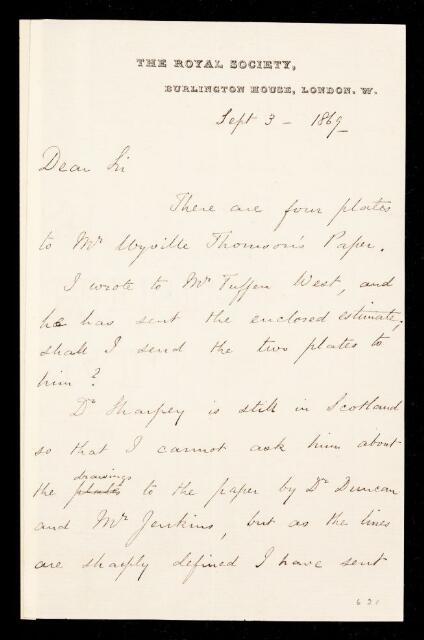 THE ROYAL SOCIETY,
BURLINGTON HOUSE, LONDON. W.
Sept 3 - 1869
Dear Sir
There are four plates
to Mr Wyville Thomson's Paper.
I wrote to Mr Tuffen West, and
he has sent the enclosed estimate;
shall I send the two plates to
him?
Dr Sharpey is still in Scotland
so that I cannot ask him about
drawings
the plates to the paper by Dr Duncan
and Mr Jenkins, but as the lines
are sharply defined I have sent
621